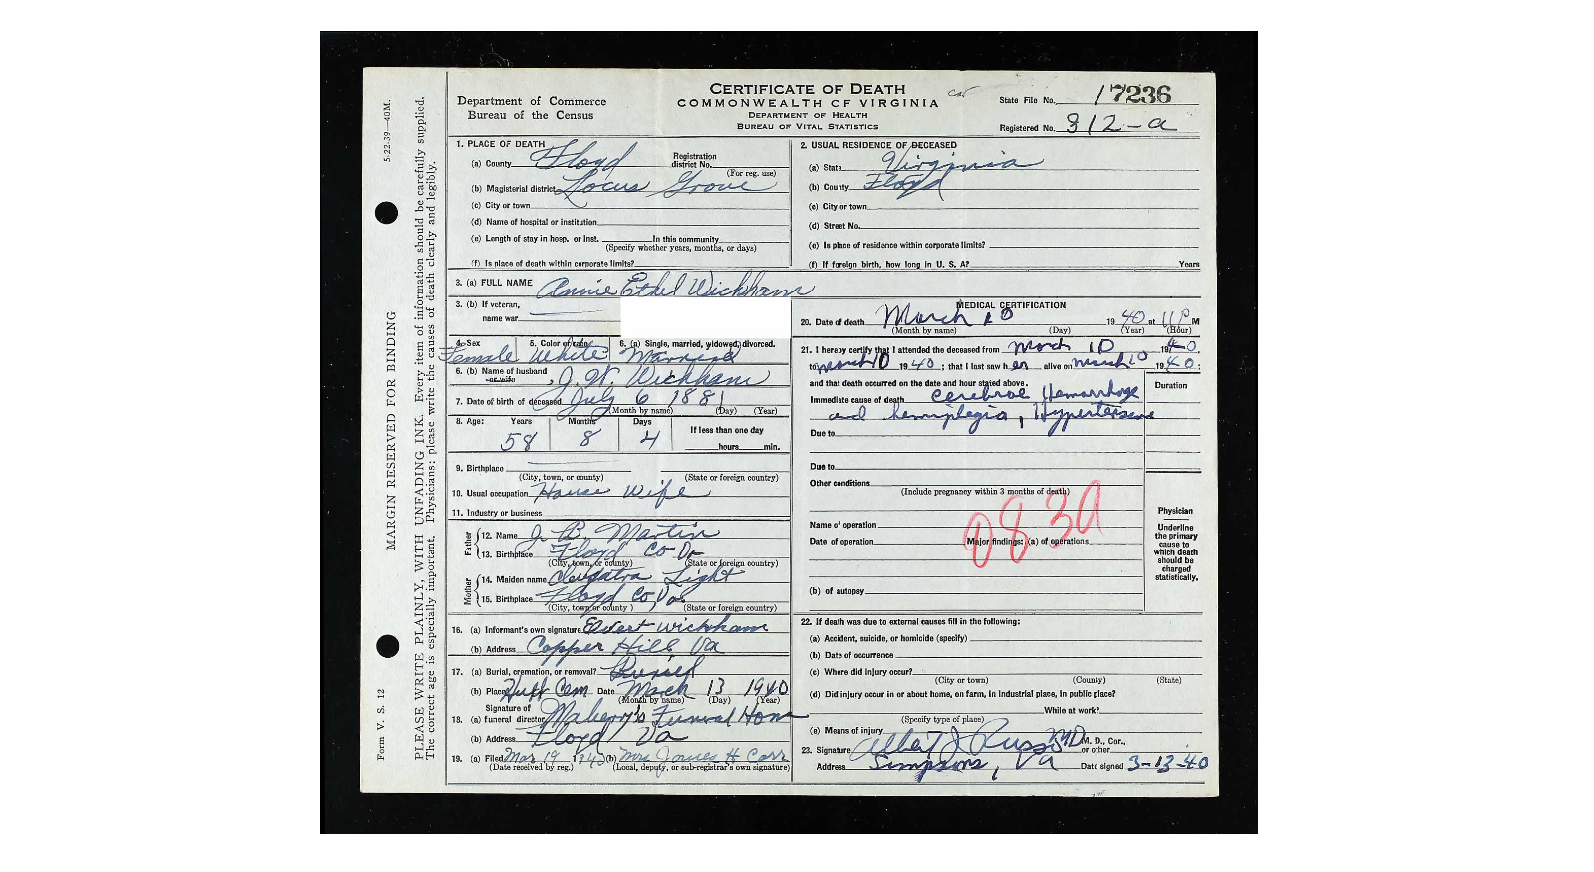 Form V. S. 12 MARGIN RESERVED FOR BINDING 5-22-39—40M.
PLEASE WRITE PLAINLY, WITH UNFADING INK. Every item of information should be carefully supplied.
The correct age is especially important. Physicians: please write the causes of death clearly and legibly.
Department of Commerce
Bureau of the Census
CERTIFICATE OF DEATH
COMMONWEALTH OF VIRGINIA
DEPARTMENT OF HEALTH
BUREAU OF VITAL STATISTICS
State File No. 17236
Registered No. 312-a
1. PLACE OF DEATH
(a) County Floyd Registration district No.
(For reg. use)
(b) Magisterial district Locus Grove
(c) City or town
(d) Name of hospital or institution
(e) Length of stay in hosp. or inst. In this community
(Specify whether years, months, or days)
(f) Is place of death within corporate limits?
2. USUAL RESIDENCE OF DECEASED
(a) State Virginia
(b) County Floyd
(c) City or town
(d) Street No.
(e) Is place of residence within corporate limits?
(f) If foreign birth, how long in U. S. A? Years
3. (a) FULL NAME Annie Ethel Wickham
3. (b) If veteran,
name war
4. Sex Female 5. Color or race White 6. (a) Single, married, widowed, divorced. Married
6. (b) Name of husband or wife J. W. Wickham
7. Date of birth of deceased July 6 1881
(Month by name) (Day) (Year)
8. Age: Years Months Days If less than one day
58 8 4 hours min.
9. Birthplace
(City, town, or county) (State or foreign country)
10. Usual occupation House Wife
11. Industry or business
Father
12. Name J. B. Martin
13. Birthplace Floyd Co Va
(City, town, or county) (State or foreign country)
Mother
14. Maiden name Cleopatra Light
15. Birthplace Floyd Co, Va
(City, town or county) (State or foreign country)
16. (a) Informant's own signature Elvert Wickham
(b) Address Copper Hill Va
17. (a) Burial, cremation, or removal? Buried
(b) Place Huff Cem Date March 13 1940
(Month by name) (Day) (Year)
Signature of
18. (a) funeral director Maberry's Funeral Home
(b) Address Floyd Va
19. (a) Filed Mar 19 1940 (b) Mrs H Carr
(Date received by reg.) (Local, deputy, or sub-registrar's own signature)
MEDICAL CERTIFICATION
20. Date of death March 10 1940 at 11 P M
(Month by name) (Day) (Year) (Hour)
21. I hereby certify that I attended the deceased from March 10 1940
to March 10 1940; that I last saw her alive on March 10 1940;
and that death occurred on the date and hour stated above. Duration
Immediate cause of death Cerebral Hemorrhage
and hemiplegia, Hypertensive
Due to
Due to
Other conditions
(Include pregnancy within 3 months of death)
083a
Name of operation
Date of operation Major findings: (a) of operations
(b) of autopsy
Physician
Underline
the primary
cause to
which death
should be
charged
statistically.
22. If death was due to external causes fill in the following:
(a) Accident, suicide, or homicide (specify)
(b) Date of occurrence
(c) Where did injury occur?
(City or town) (County) (State)
(d) Did injury occur in or about home, on farm, in industrial place, in public place?
While at work?
(Specify type of place)
(e) Means of injury
23. Signature Albert J Russo MD M. D., Cor., or other
Address Simpsons, Va Date signed 3-13-40